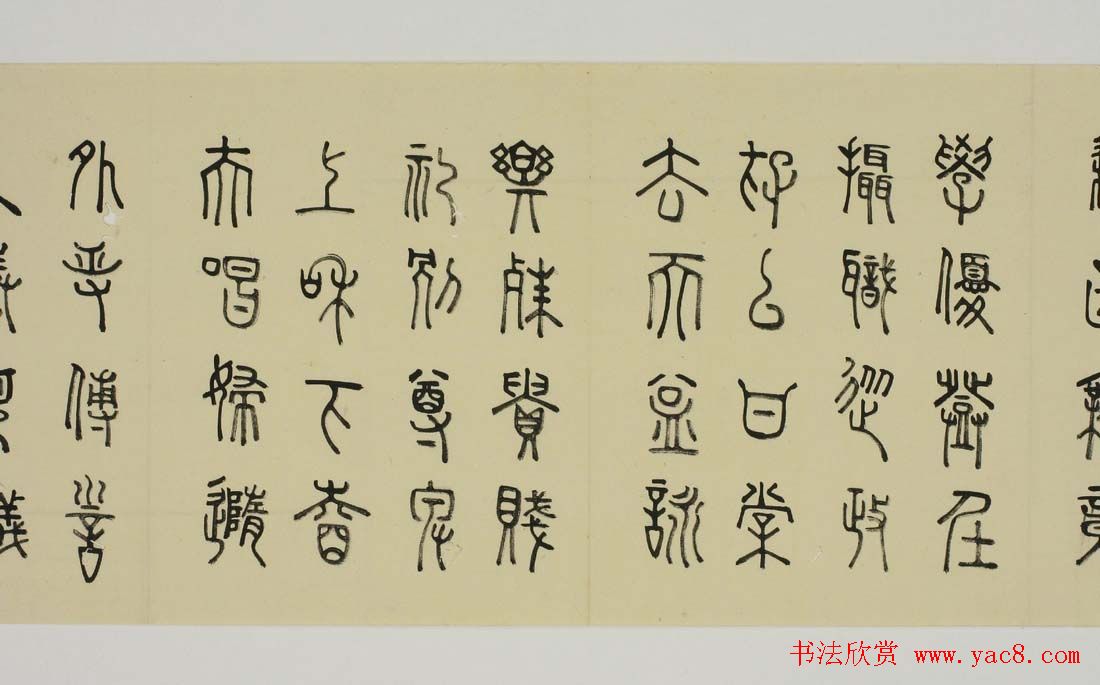 學優登仕
攝職從政
存以甘棠
去而益詠
樂殊貴賤
礼別尊卑
上和下睦
夫唱婦隨
外受傅訓
书法欣赏 www.yac8.com